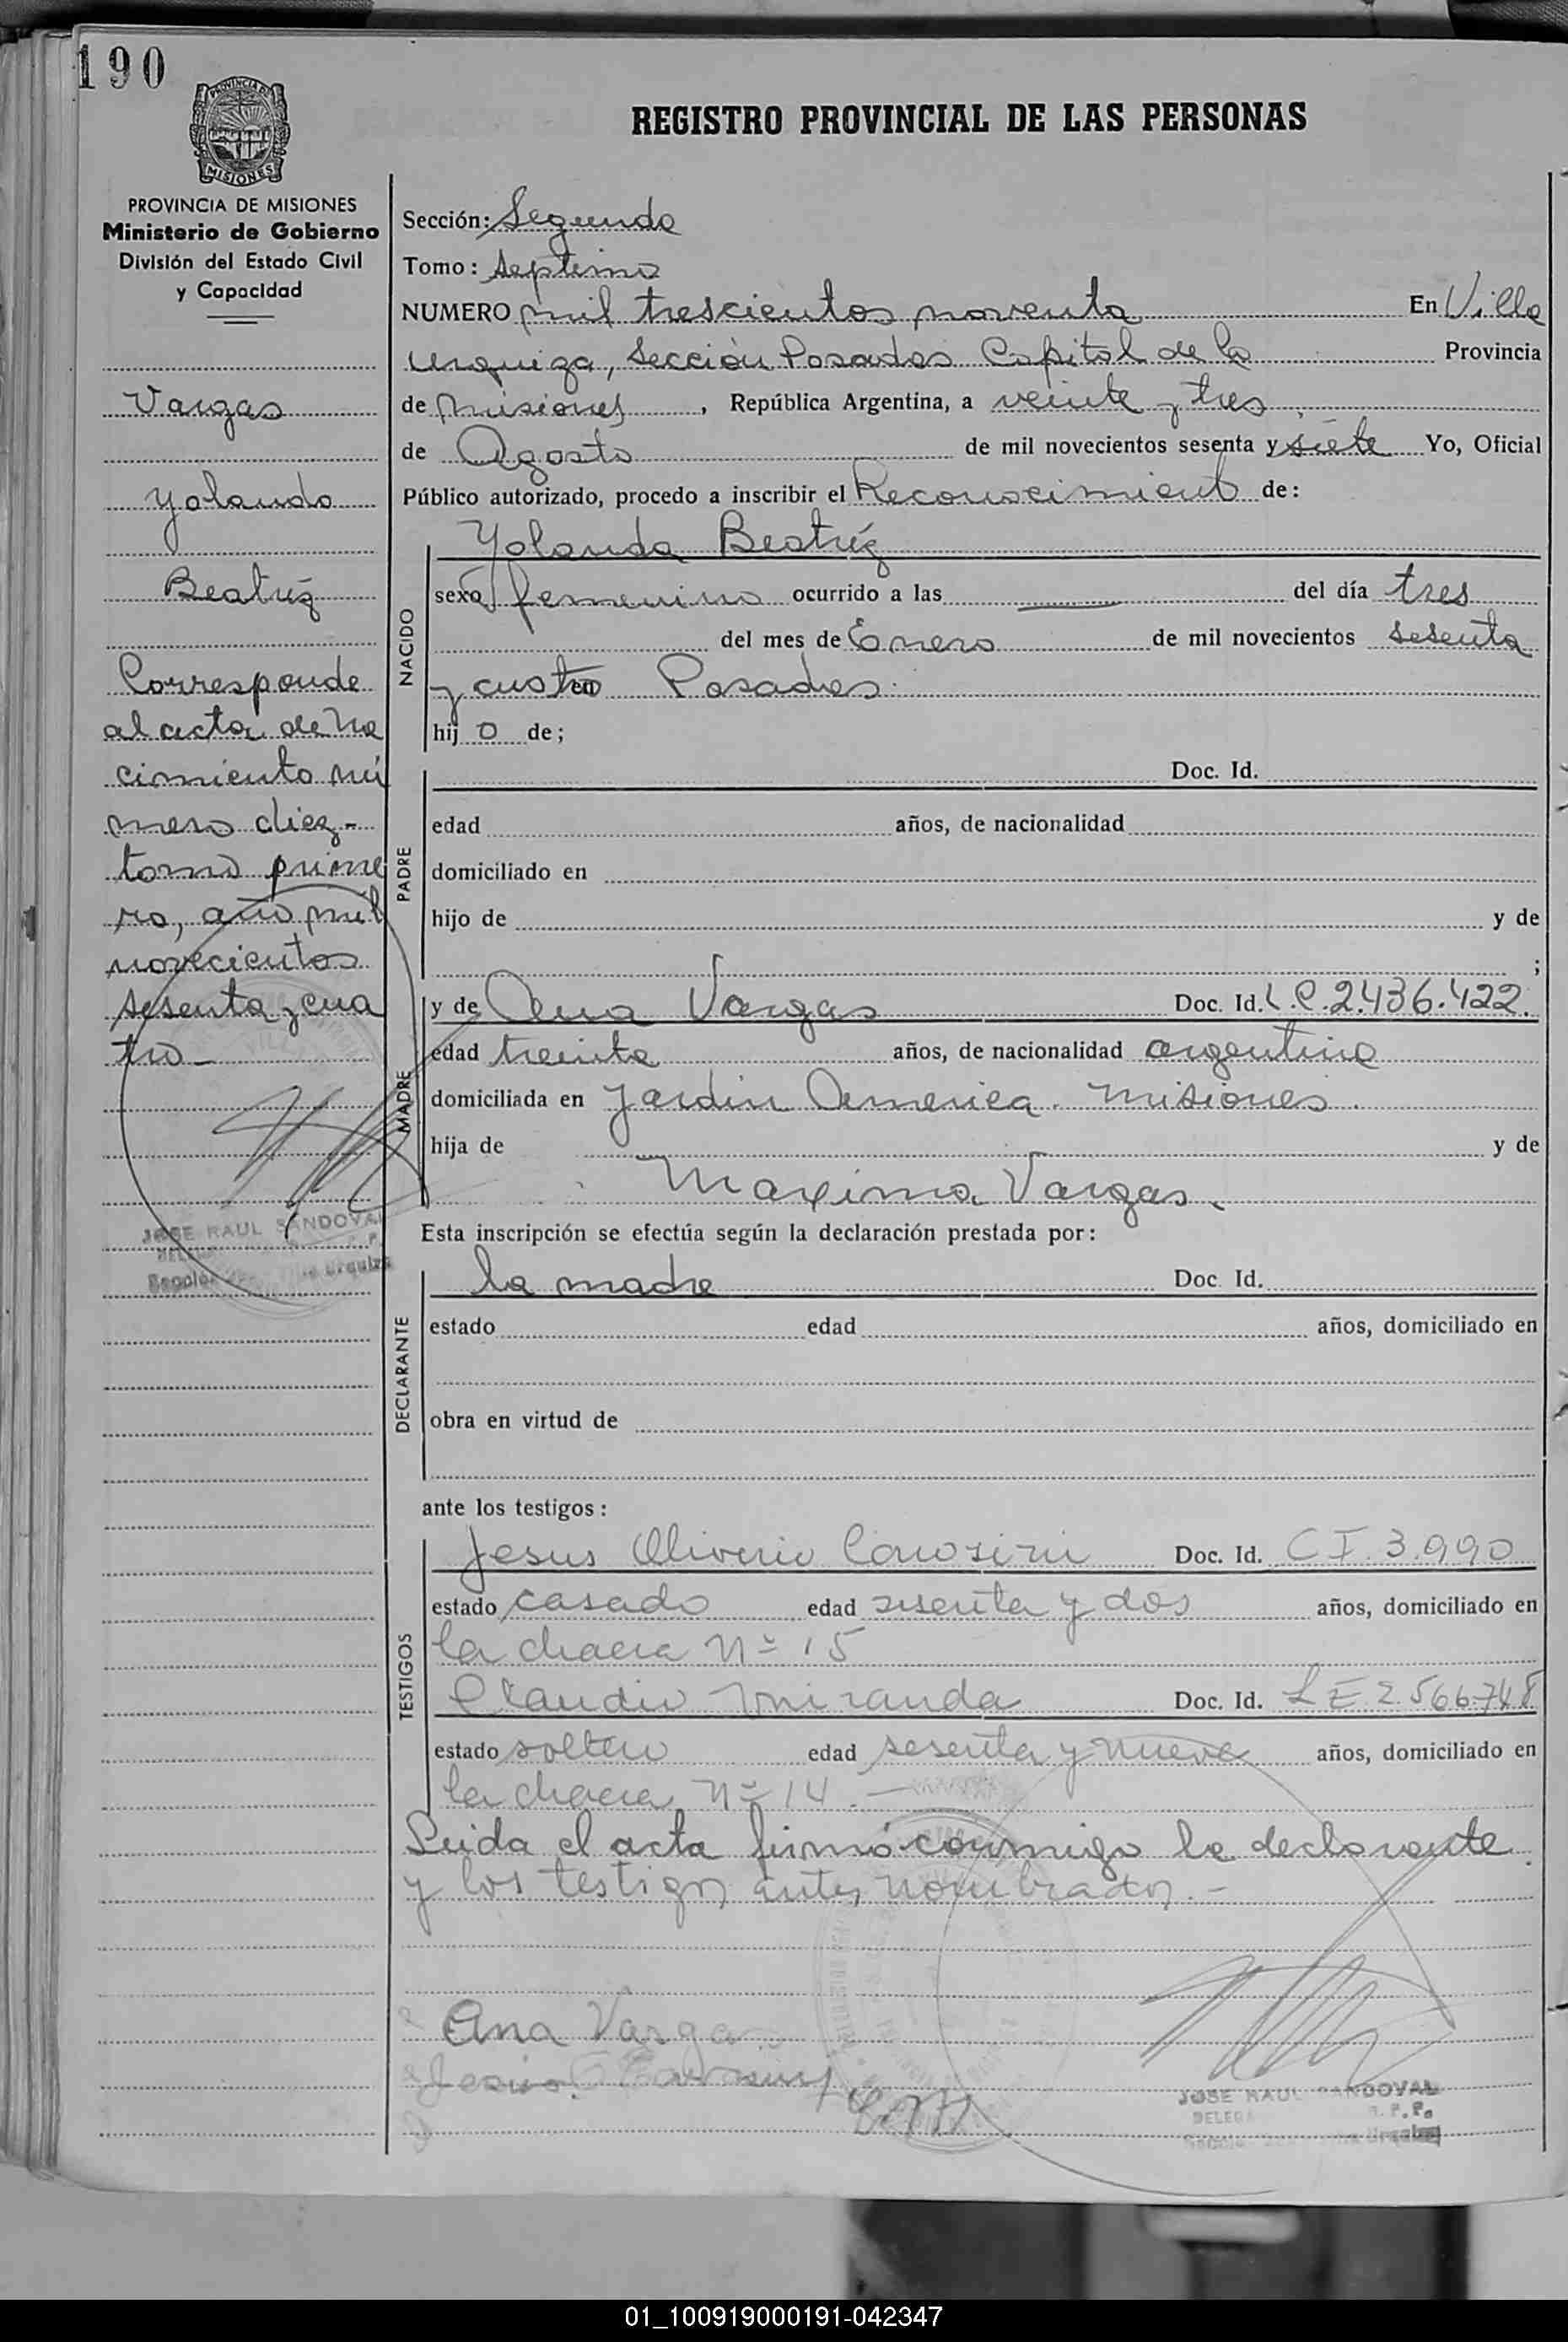 190
PROVINCIA DE MISIONES
Ministerio de Gobierno
División del Estado Civil
y Capacidad
Vargas
Yolanda
Beatríz
Corresponde
al acta de Na
cimiento nú
mero diez-
tomo prime
ro, año mil
novecientos
sesenta y cua
tro-
JOSE RAUL SANDOVAL
REGISTRO PROVINCIAL DE LAS PERSONAS
Sección: Segunda
Tomo: septimo
NUMERO mil trescientos noventa En Villa
Urquiza, Sección Posadas Capital de la Provincia
de Misiones, República Argentina, a veinte y tres
de Agosto de mil novecientos sesenta y siete Yo, Oficial
Público autorizado, procedo a inscribir el Reconocimiento de:
NACIDO
Yolanda Beatríz
sexo femenino ocurrido a las del día tres
del mes de Enero de mil novecientos sesenta
y cuatro Posadas.
hij o de;
PADRE
Doc. Id.
edad años, de nacionalidad
domiciliado en
hijo de y de
;
MADRE
y de Ana Vargas Doc. Id. L.C. 2.436.422.
edad treinta años, de nacionalidad argentina
domiciliada en Jardin America. Misiones.
hija de y de
Maxima Vargas.
Esta inscripción se efectúa según la declaración prestada por:
DECLARANTE
la madre Doc. Id.
estado edad años, domiciliado en
obra en virtud de
ante los testigos:
TESTIGOS
Jesus Oliverio Doc. Id. C I. 3.990
estado casado edad sesenta y dos años, domiciliado en
la chacra Nº 15
Claudio Miranda Doc. Id. L E 2.566.748
estado soltero edad sesenta y nueve años, domiciliado en
la chacra Nº 14.-
Leida el acta firmó conmigo la declarante
y los testigos antes nombrados.-
Ana Varga
C.M
JOSE RAUL SANDOVAL
01_100919000191-042347